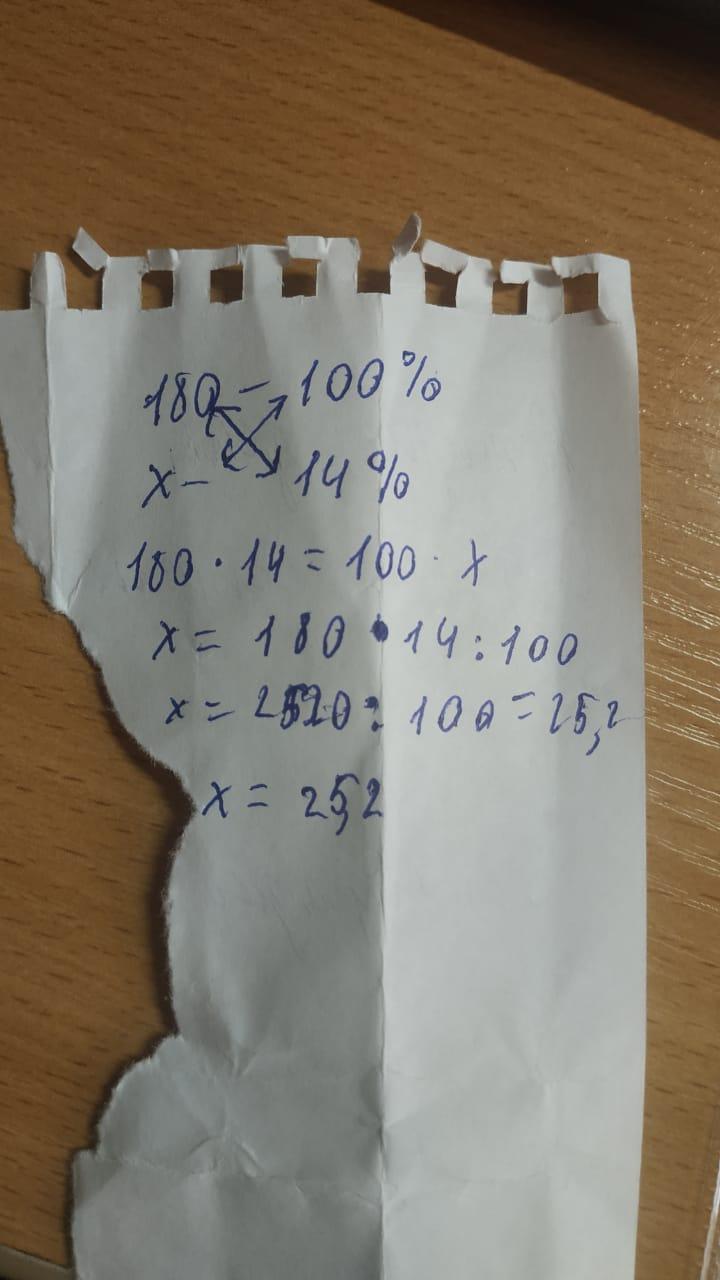 180 - 100%
x - 14%
180 · 14 = 100 · x
x = 180 · 14 : 100
x = 2520 : 100 = 25,2
x = 25,2